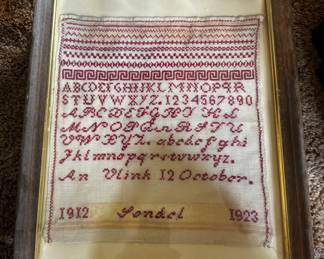 ABCDEFGHIJKLMNOPQR
STUVWXYZ.1234567890
ABCDEFGHIJKL
MNOPQRSTU
VWXYZ. abcdefghi
jklmnopqrstuvwxyz.
An Vlink 12 October.
1912 Sondel 1923